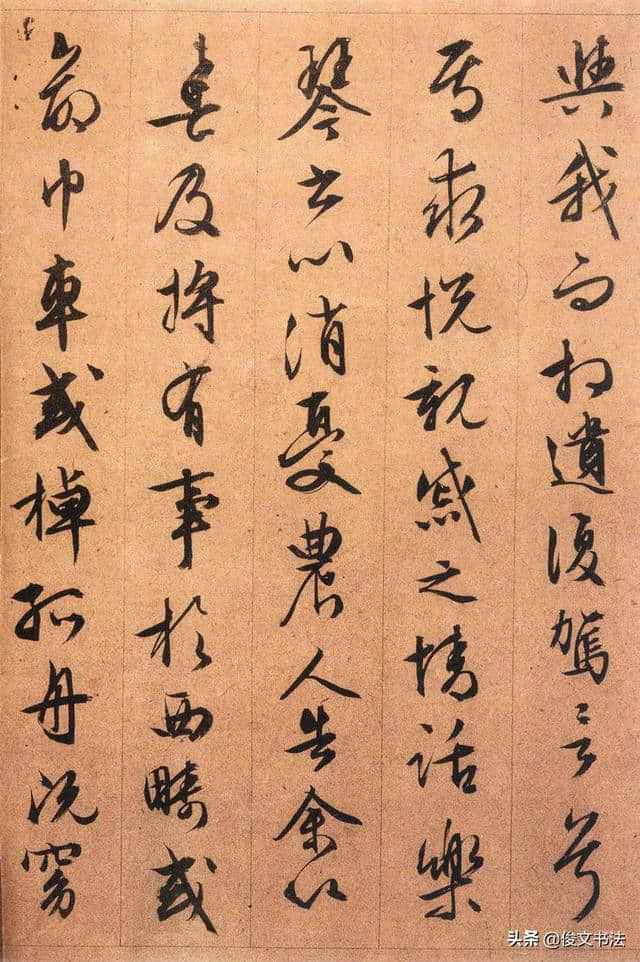 與我而相遺復駕言兮
焉求悅親戚之情話樂
琴書以消憂農人告余以
春及將有事於西疇或
命巾車或棹孤舟既窈
头条 @俊文书法